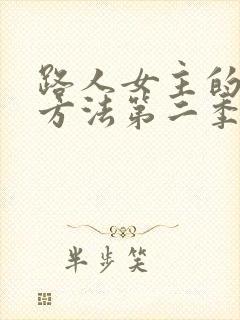 路人女主的
方法第二季
半步笑